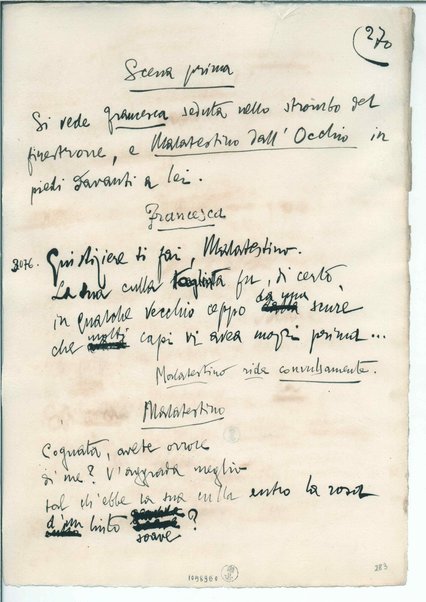 270
Scena prima
Si vede Francesca seduta nello strombo del
finestrone, e Malatestino dall'Occhio in
piedi davanti a lei.
Francesca
Giustiziere ti fai, Malatestino.
La tua culla tagliata fu, di certo,
in qualche vecchio ceppo da una scure
che molti capi vi avea mozzi prima...
Malatestino ride convulsamente.
Malatestino
Cognata, avete orrore
di me? V'aggrada meglio
tal ch'ebbe la sua culla entro la rosa
d'un liuto
soave?
1098960
283